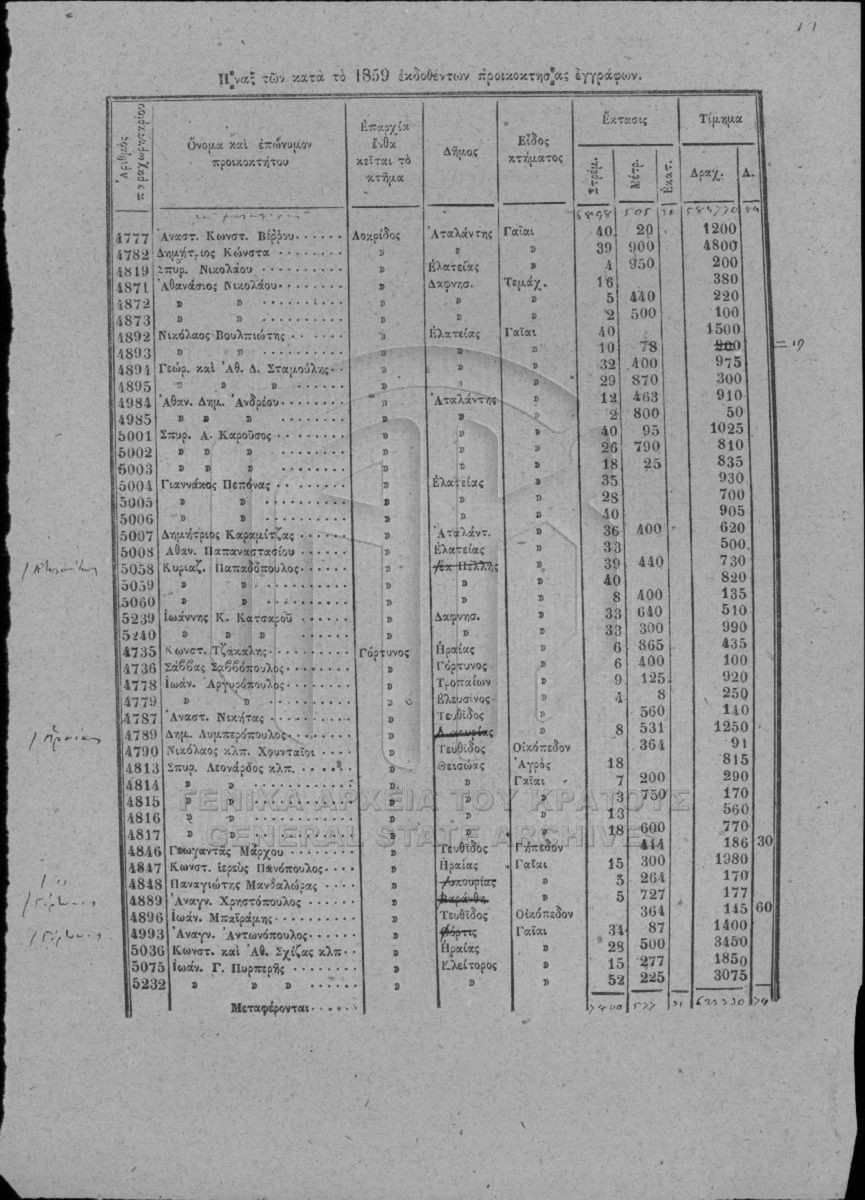 Πίναξ τῶν κατὰ τὸ 1859 ἐκδοθέντων προικοκτησίας ἐγγράφων.
Ἀριθμὸς παραχωρητηρίου | Ὄνομα καὶ ἐπώνυμον προικοκτήτου | Ἐπαρχία ἔνθα κεῖται τὸ κτῆμα | Δῆμος | Εἶδος κτήματος | Ἔκτασις Στρέμ. Μέτρ. Ἑκατ. | Τίμημα Δραχ. Λ.
4777 Ἀναστ. Κωνστ. Βέρρου Λοκρίδος Ἀταλάντης Γαῖαι 40 20 1200
4782 Δημήτριος Κώνστα » » » 39 900 4800
4819 Σπυρ. Νικολάου » Ἐλατείας » 4 950 200
4871 Ἀθανάσιος Νικολάου » Δαφνησ. Τεμάχ. 16 380
4872 » » » » » 5 440 220
4873 » » » » » 2 500 100
4892 Νικόλαος Βουλπιώτης » Ἐλατείας Γαῖαι 40 1500
4893 » » » » » 10 78
4894 Γεώρ. καὶ Ἀθ. Δ. Σταμούλης » » » 32 400 975
4895 » » » » » » 29 870 300
4984 Ἀθαν. Δημ. Ἀνδρέου » Ἀταλάντης » 12 463 910
4985 » » » » » » 2 800 50
5001 Σπυρ. Α. Καροῦσος » » » 40 95 1025
5002 » » » » » » 26 790 810
5003 » » » » » » 18 25 835
5004 Γιαννάκος Πεπόνας » Ἐλατείας » 35 930
5005 » » » » » 28 700
5006 » » » » » 40 905
5007 Δημήτριος Καραμίτζας » Ἀταλάντ. » 36 400 620
5008 Ἀθαν. Παπαναστασίου » Ἐλατείας » 33 500
5058 Κυριαζ. Παπαδόπουλος » Νέα Πέλλης » 39 440 730
5059 » » » » » 40 820
5060 » » » » » 8 400 135
5239 Ἰωάννης Κ. Κατσαροῦ » Δαφνησ. » 33 640 510
5240 » » » » » » 33 300 990
4735 Κωνστ. Τζάκαλης Γόρτυνος Ἡραίας » 6 865 435
4736 Σάββας Σαββόπουλος » Γόρτυνος » 6 400 100
4778 Ἰωάν. Ἀργυρόπουλος » Τροπαίων » 9 125 920
4779 » » » Ἐλευσῖνος » 4 8 250
4787 Ἀναστ. Νικήτας » Τευθίδος » 560 140
4789 Δημ. Λυμπερόπουλος » » 8 531 1250
4790 Νικόλαος κλπ. Χουνταῖοι » Τευθίδος Οἰκόπεδον 364 91
4813 Σπυρ. Λεονάρδος κλπ. » Θεισώας Ἀγρὸς 18 815
4814 » » » » Γαῖαι 7 200 290
4815 » » » » » 3 750 170
4816 » » » » » 13 560
4817 » » » » » 18 600 770
4846 Γεωγαντᾶς Μάρχου » Τευθίδος Γήπεδον 414 186 30
4847 Κωνστ. ἱερεὺς Πανόπουλος » Ἡραίας Γαῖαι 15 300 1980
4848 Παναγιώτης Μανδαλώρας » » 5 264 170
4889 Ἀναγν. Χρηστόπουλος » » 5 727 177
4896 Ἰωάν. Μπαϊράμης » Τευθίδος Οἰκόπεδον 364 145 60
4993 Ἀναγν. Ἀντωνόπουλος » Γαῖαι 34 87 1400
5036 Κωνστ. καὶ Ἀθ. Σχίζας κλπ » Ἡραίας » 28 500 3450
5075 Ἰωάν. Γ. Πυρπερῆς » Κλείτορος » 15 277 1850
5232 » » » » » » 52 225 3075
Μεταφέρονται
ΓΕΝΙΚΑ ΑΡΧΕΙΑ ΤΟΥ ΚΡΑΤΟΥΣ
GENERAL STATE ARCHIVES